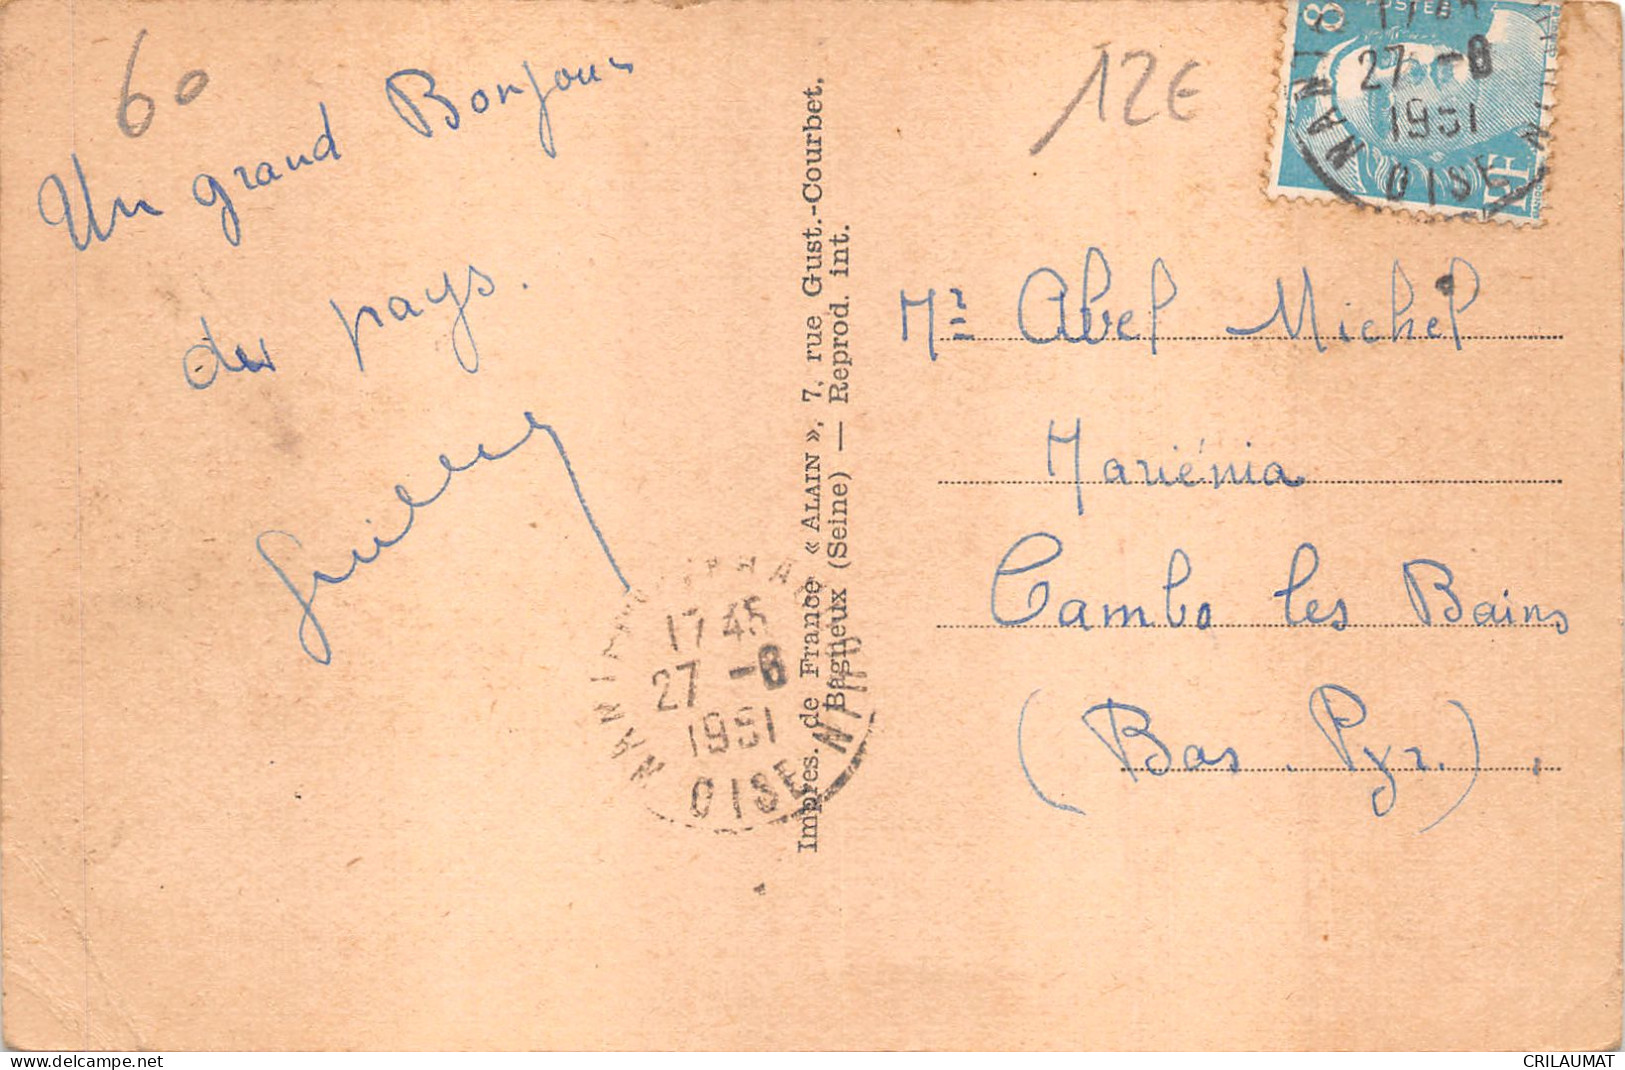 60
Un grand Bonjour
du pays.
12€
Impres. de France « ALAIN », 7, rue Gust.-Courbet.
Bagneux (Seine) — Reprod. int.
8
POSTES
RF
17 45
27 -8
1951
OISE
17 45
27 -8
1951
OISE
Mr Abel Michel
Mariénia
Cambo les Bains
(Bas. Pyr.)
www.delcampe.net
CRILAUMAT